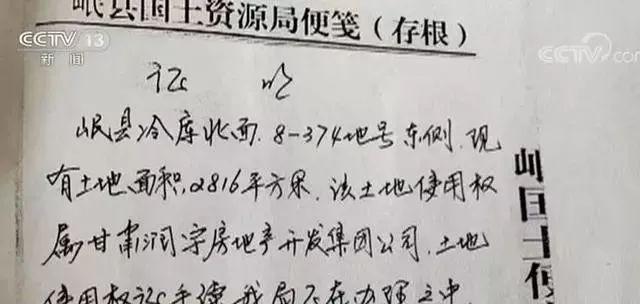 CCTV 13
新闻
CCTV.com
岷县国土资源局便笺（存根）
证明
岷县冷库北面.8-374地号东侧.现
有土地面积,2816平方米.该土地使用权
属甘肃润宇房地产开发集团公司.土地
使用权证手续我局正在办理之中
岷国土便